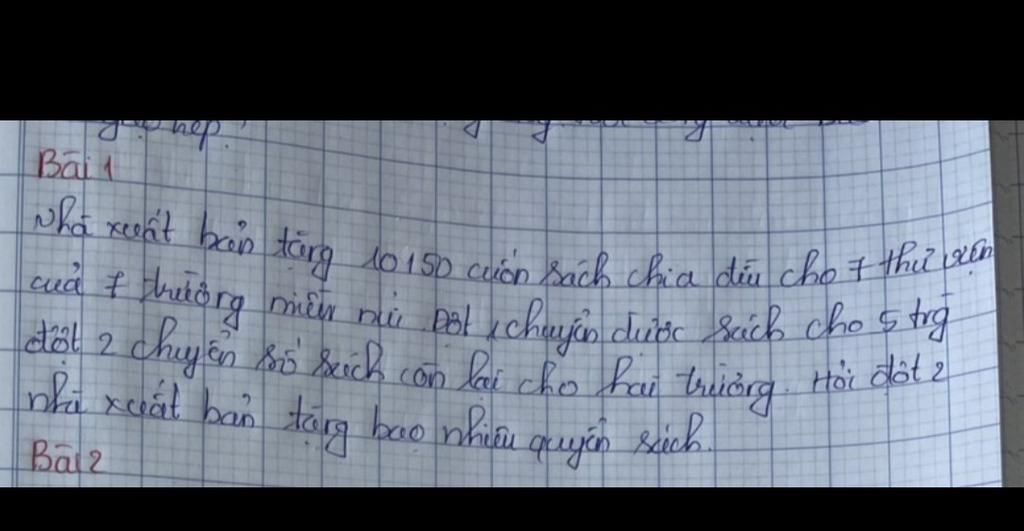 hẹp.
Bài 1
Nhà xuất bản tặng 10150 cuốn sách chia đều cho 7 thư viện
của 7 trường miền núi Đợt 1 chuyển được sách cho 5 trg
đợt 2 chuyển số sách còn lại cho hai trường. Hỏi đợt 2
nhà xuất bản tặng bao nhiêu quyển sách.
Bài 2